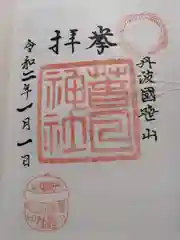 奉拝
丹波國篠山
神社
令和二年一月一日